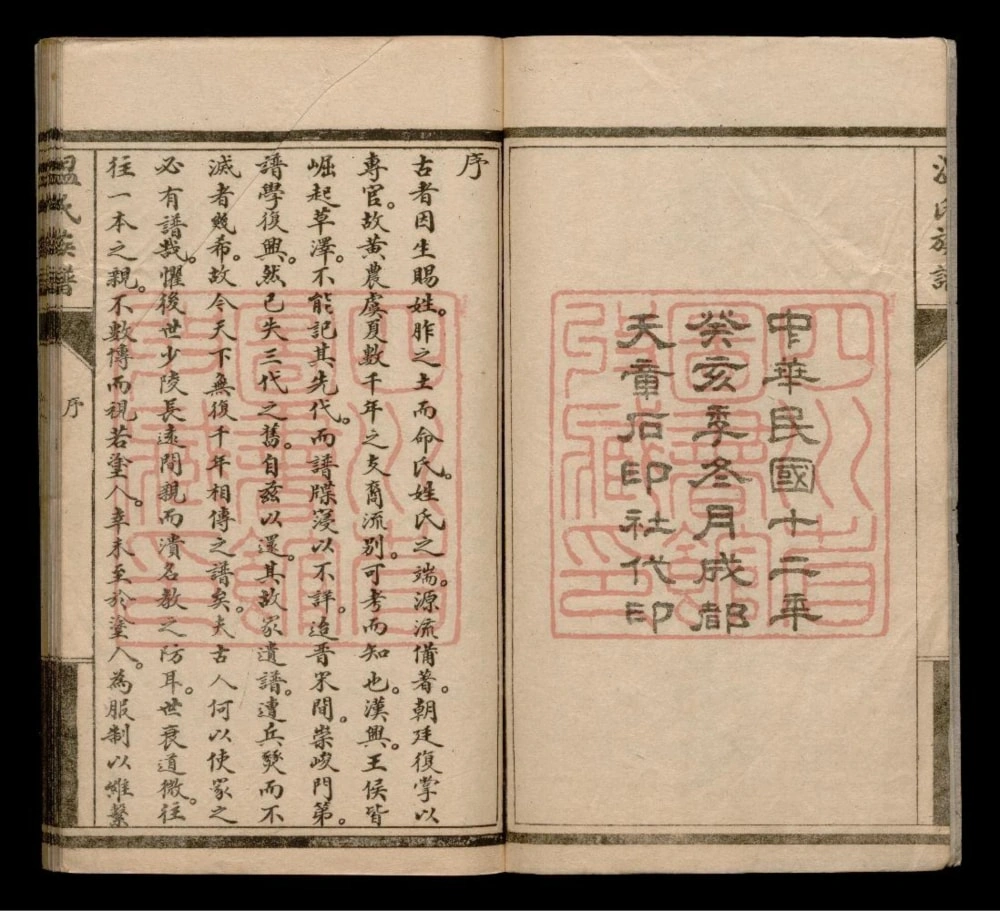 中華民國十二年
癸亥季冬月成都
天章石印社代印
序
古者因生賜姓。胙之土而命氏。姓氏之端。源流備著。朝廷復掌以
專官。故黃農虞夏數千年之支裔流別。可考而知也。漢興。王侯皆
崛起草澤。不能記其先代。而譜牒寖以不詳。迨晉宋間。崇峻門第。
譜學復興。然已失三代之舊。自茲以還。其故家遺譜。遭兵燹而不
滅者幾希。故今天下無復千年相傳之譜矣。夫古人何以使家之
必有譜哉。懼後世少陵長遠間親而潰名教之防耳。世衰道微。往
往一本之親。不數傳而視若塗人。幸未至於塗人。為服制以維繫
溫氏族譜
序
氏族譜
四川省
圖書館